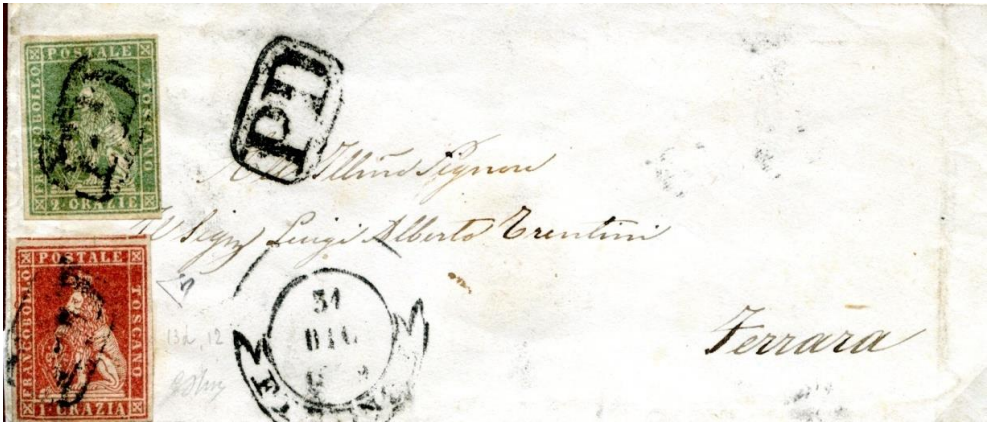 FRANCOBOLLO POSTALE TOSCANO
2·CRAZIE
PD
All' Illmo Signore
Il Sigr Luigi Alberto Trentini
Ferrara
FRANCOBOLLO POSTALE TOSCANO
1·CRAZIA
31
DIC
13d, 12